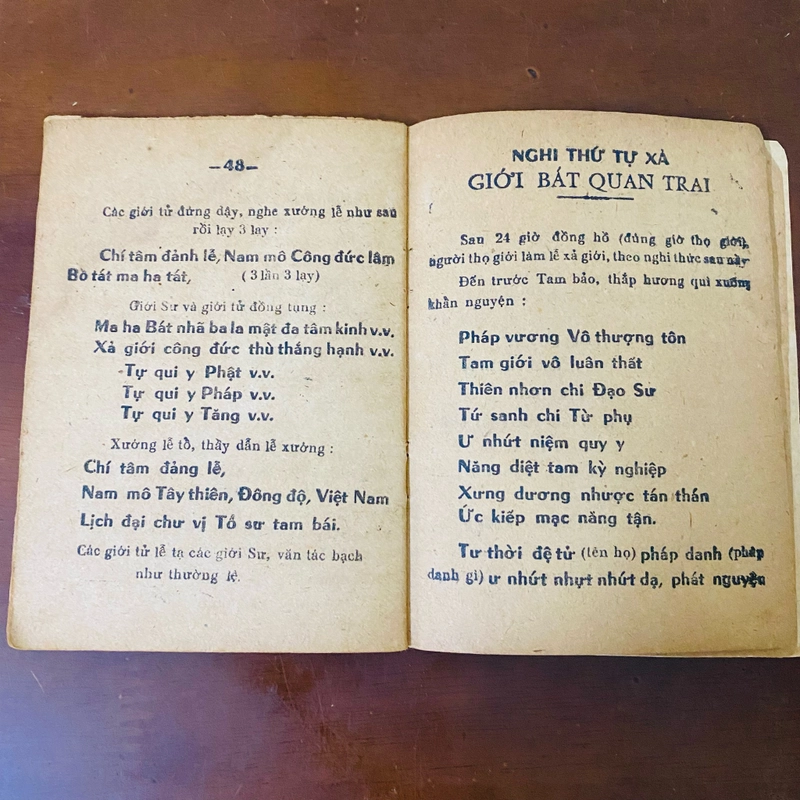 —48—
Các giới tử đứng dậy, nghe xướng lễ như sau
rồi lạy 3 lạy :
Chí tâm đảnh lễ, Nam mô Công đức lâm
Bồ tát ma ha tát, (3 lần 3 lạy)
Giới Sư và giới tử đồng tụng :
Ma ha Bát nhã ba la mật đa tâm kinh v.v.
Xả giới công đức thù thắng hạnh v.v.
Tự qui y Phật v.v.
Tự qui y Pháp v.v.
Tự qui y Tăng v.v.
Xướng lễ tổ, thầy dẫn lễ xướng :
Chí tâm đảng lễ,
Nam mô Tây thiên, Đông độ, Việt Nam
Lịch đại chư vị Tổ sư tam bái.
Các giới tử lễ tạ các giới Sư, văn tác bạch
như thường lệ.
NGHI THỨ TỰ XẢ
GIỚI BÁT QUAN TRAI
Sau 24 giờ đồng hồ (đúng giờ thọ giới),
người thọ giới làm lễ xả giới, theo nghi thức sau này
Đến trước Tam bảo, thắp hương quì xuống
khấn nguyện :
Pháp vương Vô thượng tôn
Tam giới vô luân thất
Thiên nhơn chi Đạo Sư
Tứ sanh chi Từ phụ
Ư nhứt niệm quy y
Năng diệt tam kỳ nghiệp
Xưng dương nhược tán thán
Ức kiếp mạc năng tận.
Tư thời đệ tử (tên họ) pháp danh (pháp
danh gì) ư nhứt nhựt nhứt dạ, phát nguyện